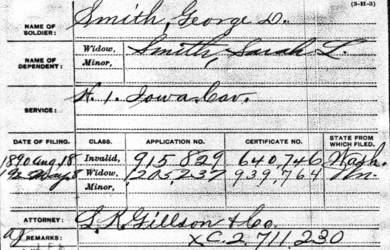 (3-H-3)
NAME OF SOLDIER: Smith, George D.
NAME OF DEPENDENT: Widow, Smith, Sarah L.
Minor,
SERVICE: H. 1. Iowa Cav.
DATE OF FILING. CLASS. APPLICATION NO. CERTIFICATE NO. STATE FROM WHICH FILED.
1890 Aug. 18 Invalid, 915,829 640,746 Wash.
May 8 Widow, 1205,237 939,764
Minor,
ATTORNEY: Gillson & Co.
REMARKS: XC 2,711,230